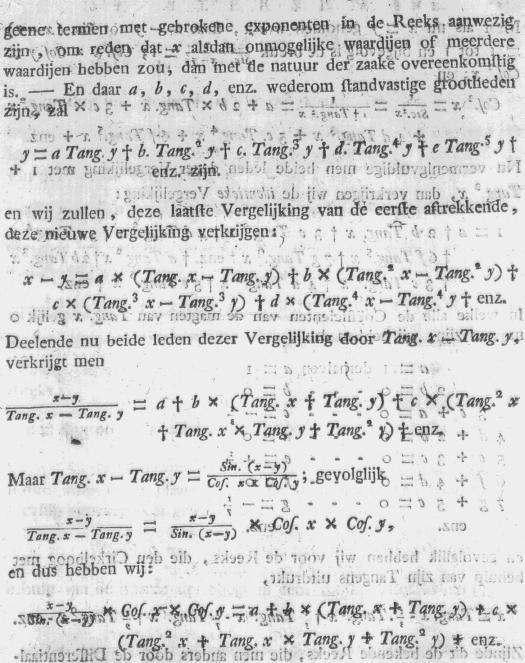 geene termen met gebrokene exponenten in de Reeks aanwezig
zijn, om reden dat x alsdan onmogelijke waardijen of meerdere
waardijen hebben zou, dan met de natuur der zaake overeenkomſtig
is. — En daar a, b, c, d, enz. wederom ſtandvastige grootheden
zijn, zal
y = a Tang. y † b. Tang.² y † c. Tang.³ y † d. Tang.⁴ y † e Tang.⁵ y †
enz. zijn.
en wij zullen, deze laatſte Vergelijking van de eerſte aftrekkende,
deze nieuwe Vergelijking verkrijgen:
x — y = a × (Tang. x — Tang. y) † b × (Tang.² x — Tang.² y) †
c × (Tang.³ x — Tang.³ y) † d × (Tang.⁴ x — Tang.⁴ y † enz.
Deelende nu beide leden dezer Vergelijking door Tang. x — Tang. y,
verkrijgt men
x—y / Tang. x — Tang. y = a † b × (Tang. x † Tang. y) † c × (Tang.² x
† Tang. x × Tang. y † Tang.² y) † enz.
Maar Tang. x — Tang. y = Sin. (x—y) / Coſ. x × Coſ. y ; gevolglijk
x—y / Tang. x — Tang. y = x—y / Sin. (x—y) × Coſ. x × Coſ. y,
en dus hebben wij:
x—y / Sin. (x—y) × Coſ. x × Coſ. y = a † b × (Tang. x † Tang. y) † c ×
(Tang.² x † Tang. x × Tang. y † Tang.² y) † enz.